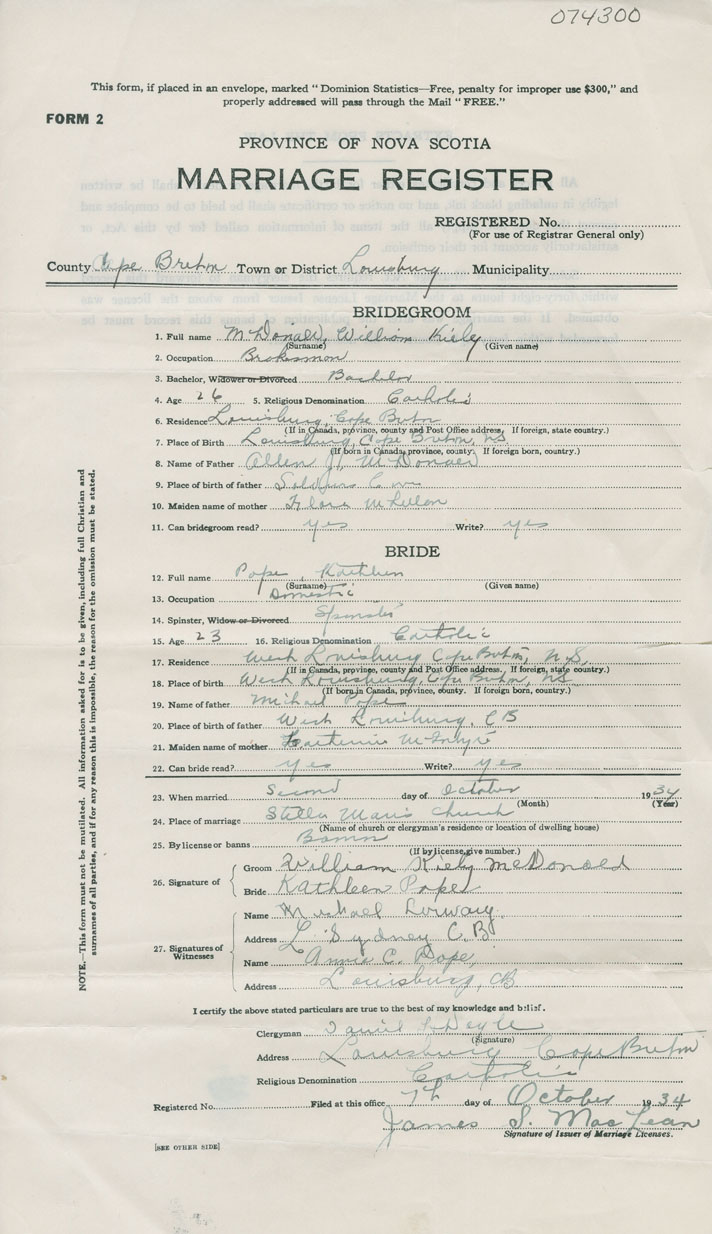 074300
This form, if placed in an envelope, marked "Dominion Statistics—Free, penalty for improper use $300," and
properly addressed will pass through the Mail "FREE."
FORM 2
PROVINCE OF NOVA SCOTIA
MARRIAGE REGISTER
REGISTERED No.
(For use of Registrar General only)
County Cape Breton Town or District Louisburg Municipality
BRIDEGROOM
1. Full name McDonald, William Kiely
(Surname) (Given name)
2. Occupation Brakesman
3. Bachelor, Widower or Divorced Bachelor
4. Age 26 5. Religious Denomination Catholic
6. Residence Louisburg, Cape Breton
(If in Canada, province, county and Post Office address. If foreign, state country.)
7. Place of Birth Louisburg, Cape Breton, NS
(If born in Canada, province, county. If foreign born, country.)
8. Name of Father Allen J. McDonald
9. Place of birth of father Soldiers Cove
10. Maiden name of mother Flora McLellan
11. Can bridegroom read? yes Write? yes
BRIDE
12. Full name Pope, Kathleen
(Surname) (Given name)
13. Occupation Domestic
14. Spinster, Widow or Divorced Spinster
15. Age 23 16. Religious Denomination Catholic
17. Residence West Louisburg Cape Breton, N.S.
(If in Canada, province, county and Post Office address. If foreign, state country.)
18. Place of Birth West Louisburg, Cape Breton, NS
(If born in Canada, province, county. If foreign born, country.)
19. Name of father Michael Pope
20. Place of birth of father West Louisburg, CB
21. Maiden name of mother Katherine McIntyre
22. Can bride read? yes Write? yes
23. When married Second day of October 1934
(Month) (Year)
24. Place of marriage Stella Maris Church
(Name of church or clergyman's residence or location of dwelling house)
25. By license or banns Banns
(If by license, give number.)
26. Signature of
Groom William Kiely McDonald
Bride Kathleen Pope
27. Signatures of Witnesses
Name Michael
Address L Sydney C.B
Name Annie C. Pope,
Address Louisburg, CB
I certify the above stated particulars are true to the best of my knowledge and belief.
Clergyman Daniel Doyle
(Signature)
Address Louisburg Cape Breton
Religious Denomination Catholic
Registered No. Filed at this office 7th day of October 1934
James S. MacLean
Signature of Issuer of Marriage Licenses.
[SEE OTHER SIDE]
NOTE.—This form must not be mutilated. All information asked for is to be given, including full Christian and
surnames of all parties, and if for any reason this is impossible, the reason for the omission must be stated.